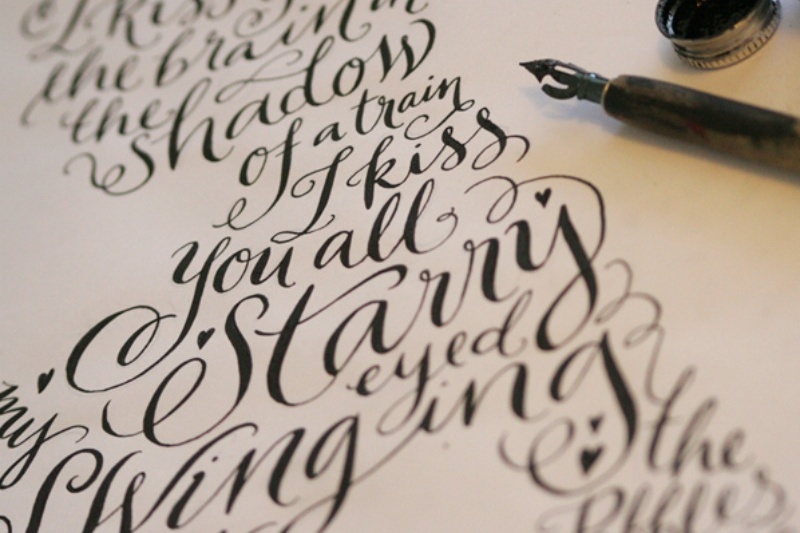 I kiss
the brain in
the shadow
of a train
I kiss
you all
Starry
eyed
Swinging
the